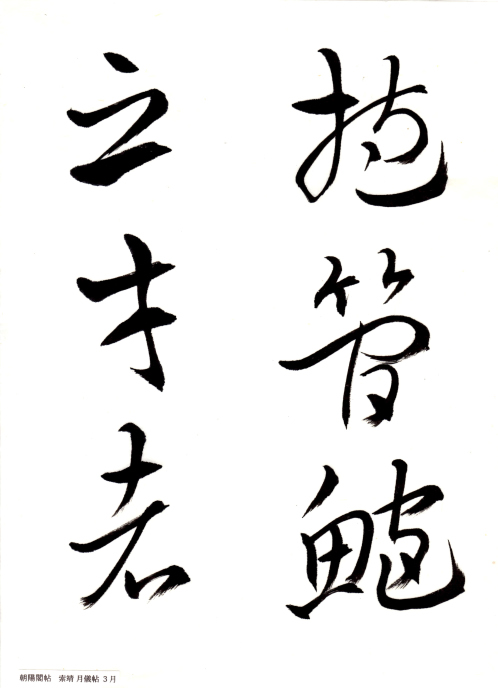 抱管鮑
之才者
朝陽閣帖　索晴 月儀帖 3月